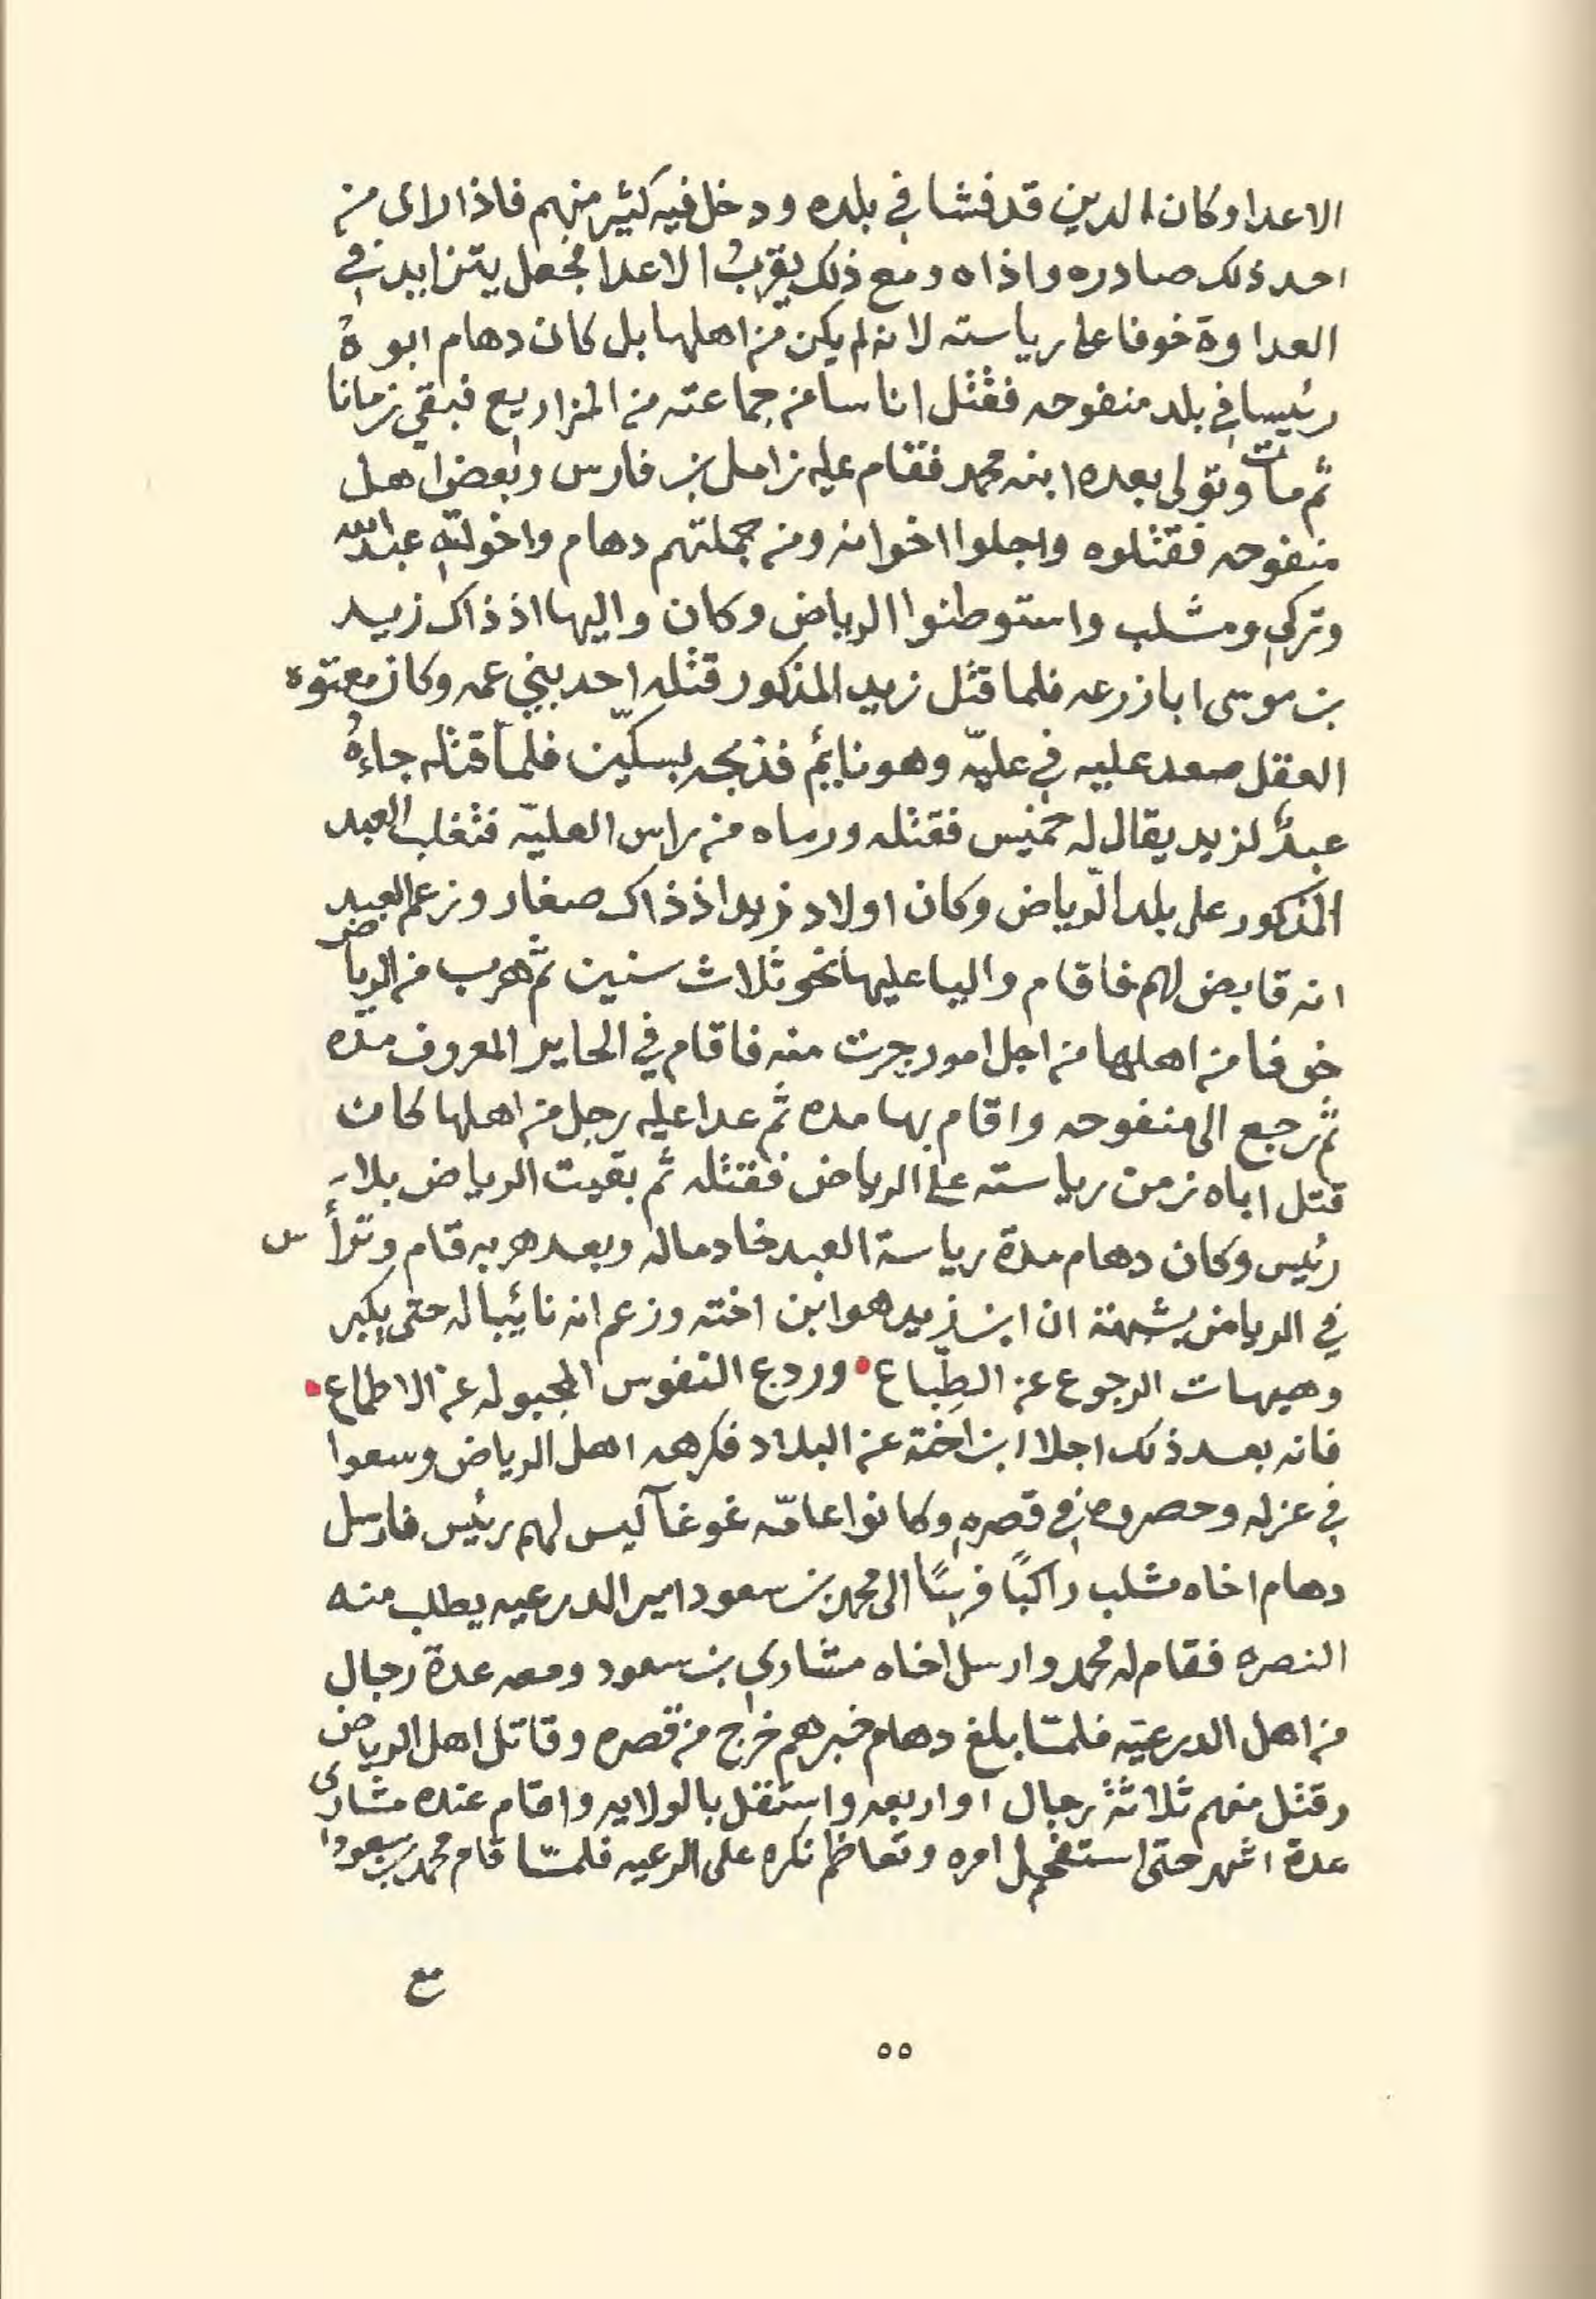 الاعدا وكان الدين قد فشا في بلده ودخل فيه كثير منهم فاذا راى من
احد ذلك صادره واذاه ومع ذلك يقرب الاعدا فجعل يتزايد في
العداوة خوفا على رياسته لانه لم يكن من اهلها بل كان دهام ابوهُ
رئيسا في بلد منفوحه فقتل اناسا من جماعته من المزاريع فبقي زمانا
ثم مات وتولى بعده ابنه محمد فقام عليه زامل بن فارس وبعض اهل
منفوحه فقتلوه واجلوا اخوانه ومن جملتهم دهام واخوته عبدالله
وتركي ومشلب واستوطنوا الرياض وكان واليها اذ ذاك زيد
بن موسى ابا زرعه فلما قتل زيد المذكور قتله احد بني عمه وكان معتوه
العقل صعد عليه في عليّه وهو نايم فذبحه بسكّين فلما قتله جاءهُ
عبدٌ لزيد يقال له خميس فقتله ورماه من راس العليّه فتغلب العبد
المذكور على بلد الرّياض وكان اولاد زيد اذ ذاك صغار وزعم العبد
انه قابض لهم فاقام واليا عليها نحو ثلاث سنين ثم هرب من الرياض
خوفا من اهلها من اجل امور جرت منه فاقام في الحاير المعروف مدّه
ثم رجع الى منفوحه واقام بها مده ثم عدا عليه رجل من اهلها كان
قتل اباه زمن رياسته على الرياض فقتله ثم بقيت الرياض بلا ر
رئيس وكان دهام مدة رياسة العبد خادما له وبعد هربه قام وترأ س
في الرياض بشبهة ان ابن زيد هو ابن اخته وزعم انه نائبا له حتى يكبر
وهيهات الرجوع عن الطِّباع • وردع النفوس المجبوله عن الاطماع •
فانه بعد ذلك اجلا ابن اخته عن البلاد فكرهه اهل الرياض وسعوا
في عزله وحصروه في قصره وكانوا عامّه غوغآ ليس لهم رئيس فارسل
دهام اخاه مشلب راكبًا فرسًا الى محمد بن سعود امير الدرعيه يطلب منه
النصره فقام له محمد وارسل اخاه مشاري بن سعود ومعه عدة رجال
من اهل الدرعيّه فلمّا بلغ دهام خبرهم خرج من قصره وقاتل اهل الرياض
وقتل منهم ثلاثة رجال او اربعه واستقل بالولايه واقام عنده مشارى
عدة اشهر حتى استفحل امره وتعاظم نكره على الرعيه فلمّا قام محمد بن سعود
مع
٥٥